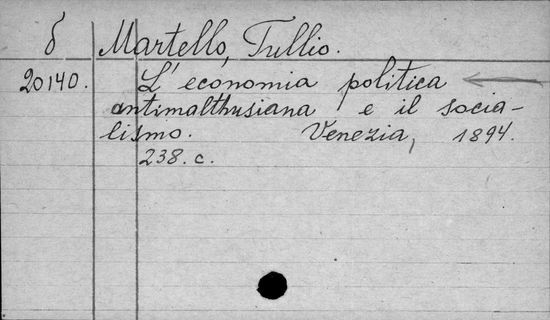 δ Martello, Tullio.
20140. L'economia politica
antimalthusiana e il socia-
lismo. Venezia, 1894.
238. c.